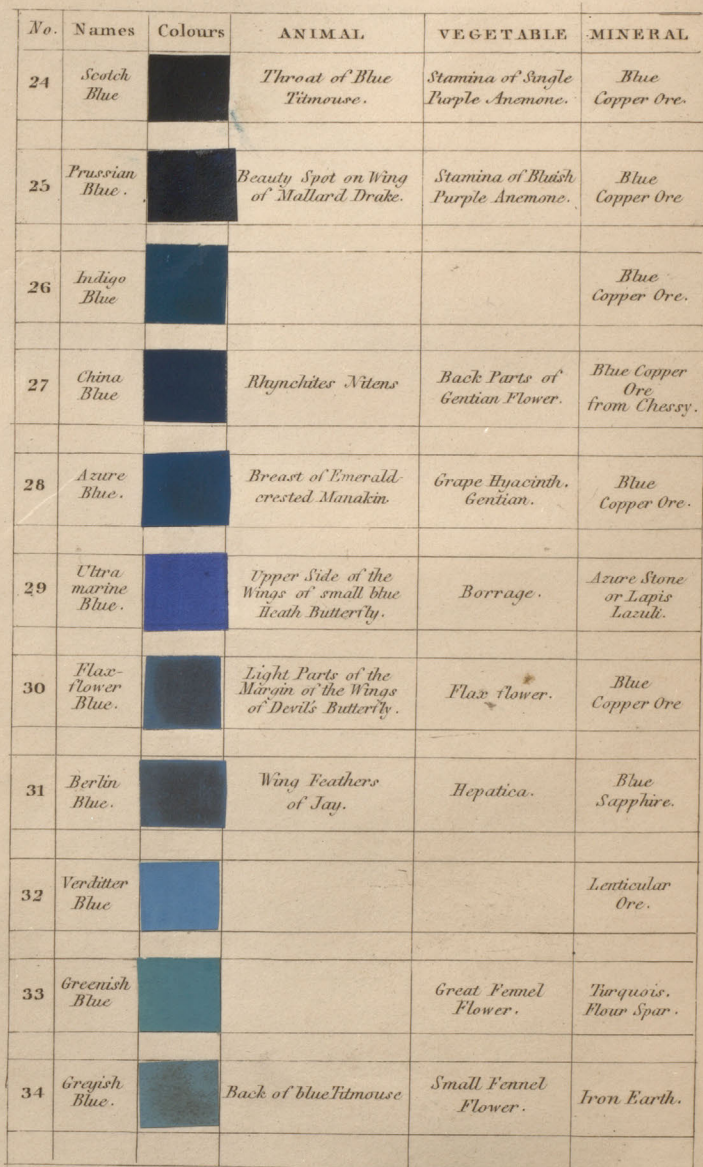 No. Names Colours ANIMAL VEGETABLE MINERAL
24 Scotch Blue Throat of Blue Titmouse. Stamina of Single Purple Anemone. Blue Copper Ore.
25 Prussian Blue. Beauty Spot on Wing of Mallard Drake. Stamina of Bluish Purple Anemone. Blue Copper Ore
26 Indigo Blue Blue Copper Ore.
27 China Blue Rhynchites Nitens Back Parts of Gentian Flower. Blue Copper Ore from Chessy.
28 Azure Blue. Breast of Emerald-crested Manakin. Grape Hyacinth. Gentian. Blue Copper Ore.
29 Ultra marine Blue. Upper Side of the Wings of small blue Heath Butterfly. Borrage. Azure Stone or Lapis Lazuli.
30 Flax-flower Blue. Light Parts of the Margin of the Wings of Devil's Butterfly. Flax flower. Blue Copper Ore
31 Berlin Blue. Wing Feathers of Jay. Hepatica. Blue Sapphire.
32 Verditter Blue Lenticular Ore.
33 Greenish Blue Great Fennel Flower. Turquois. Flour Spar.
34 Greyish Blue. Back of blue Titmouse Small Fennel Flower. Iron Earth.